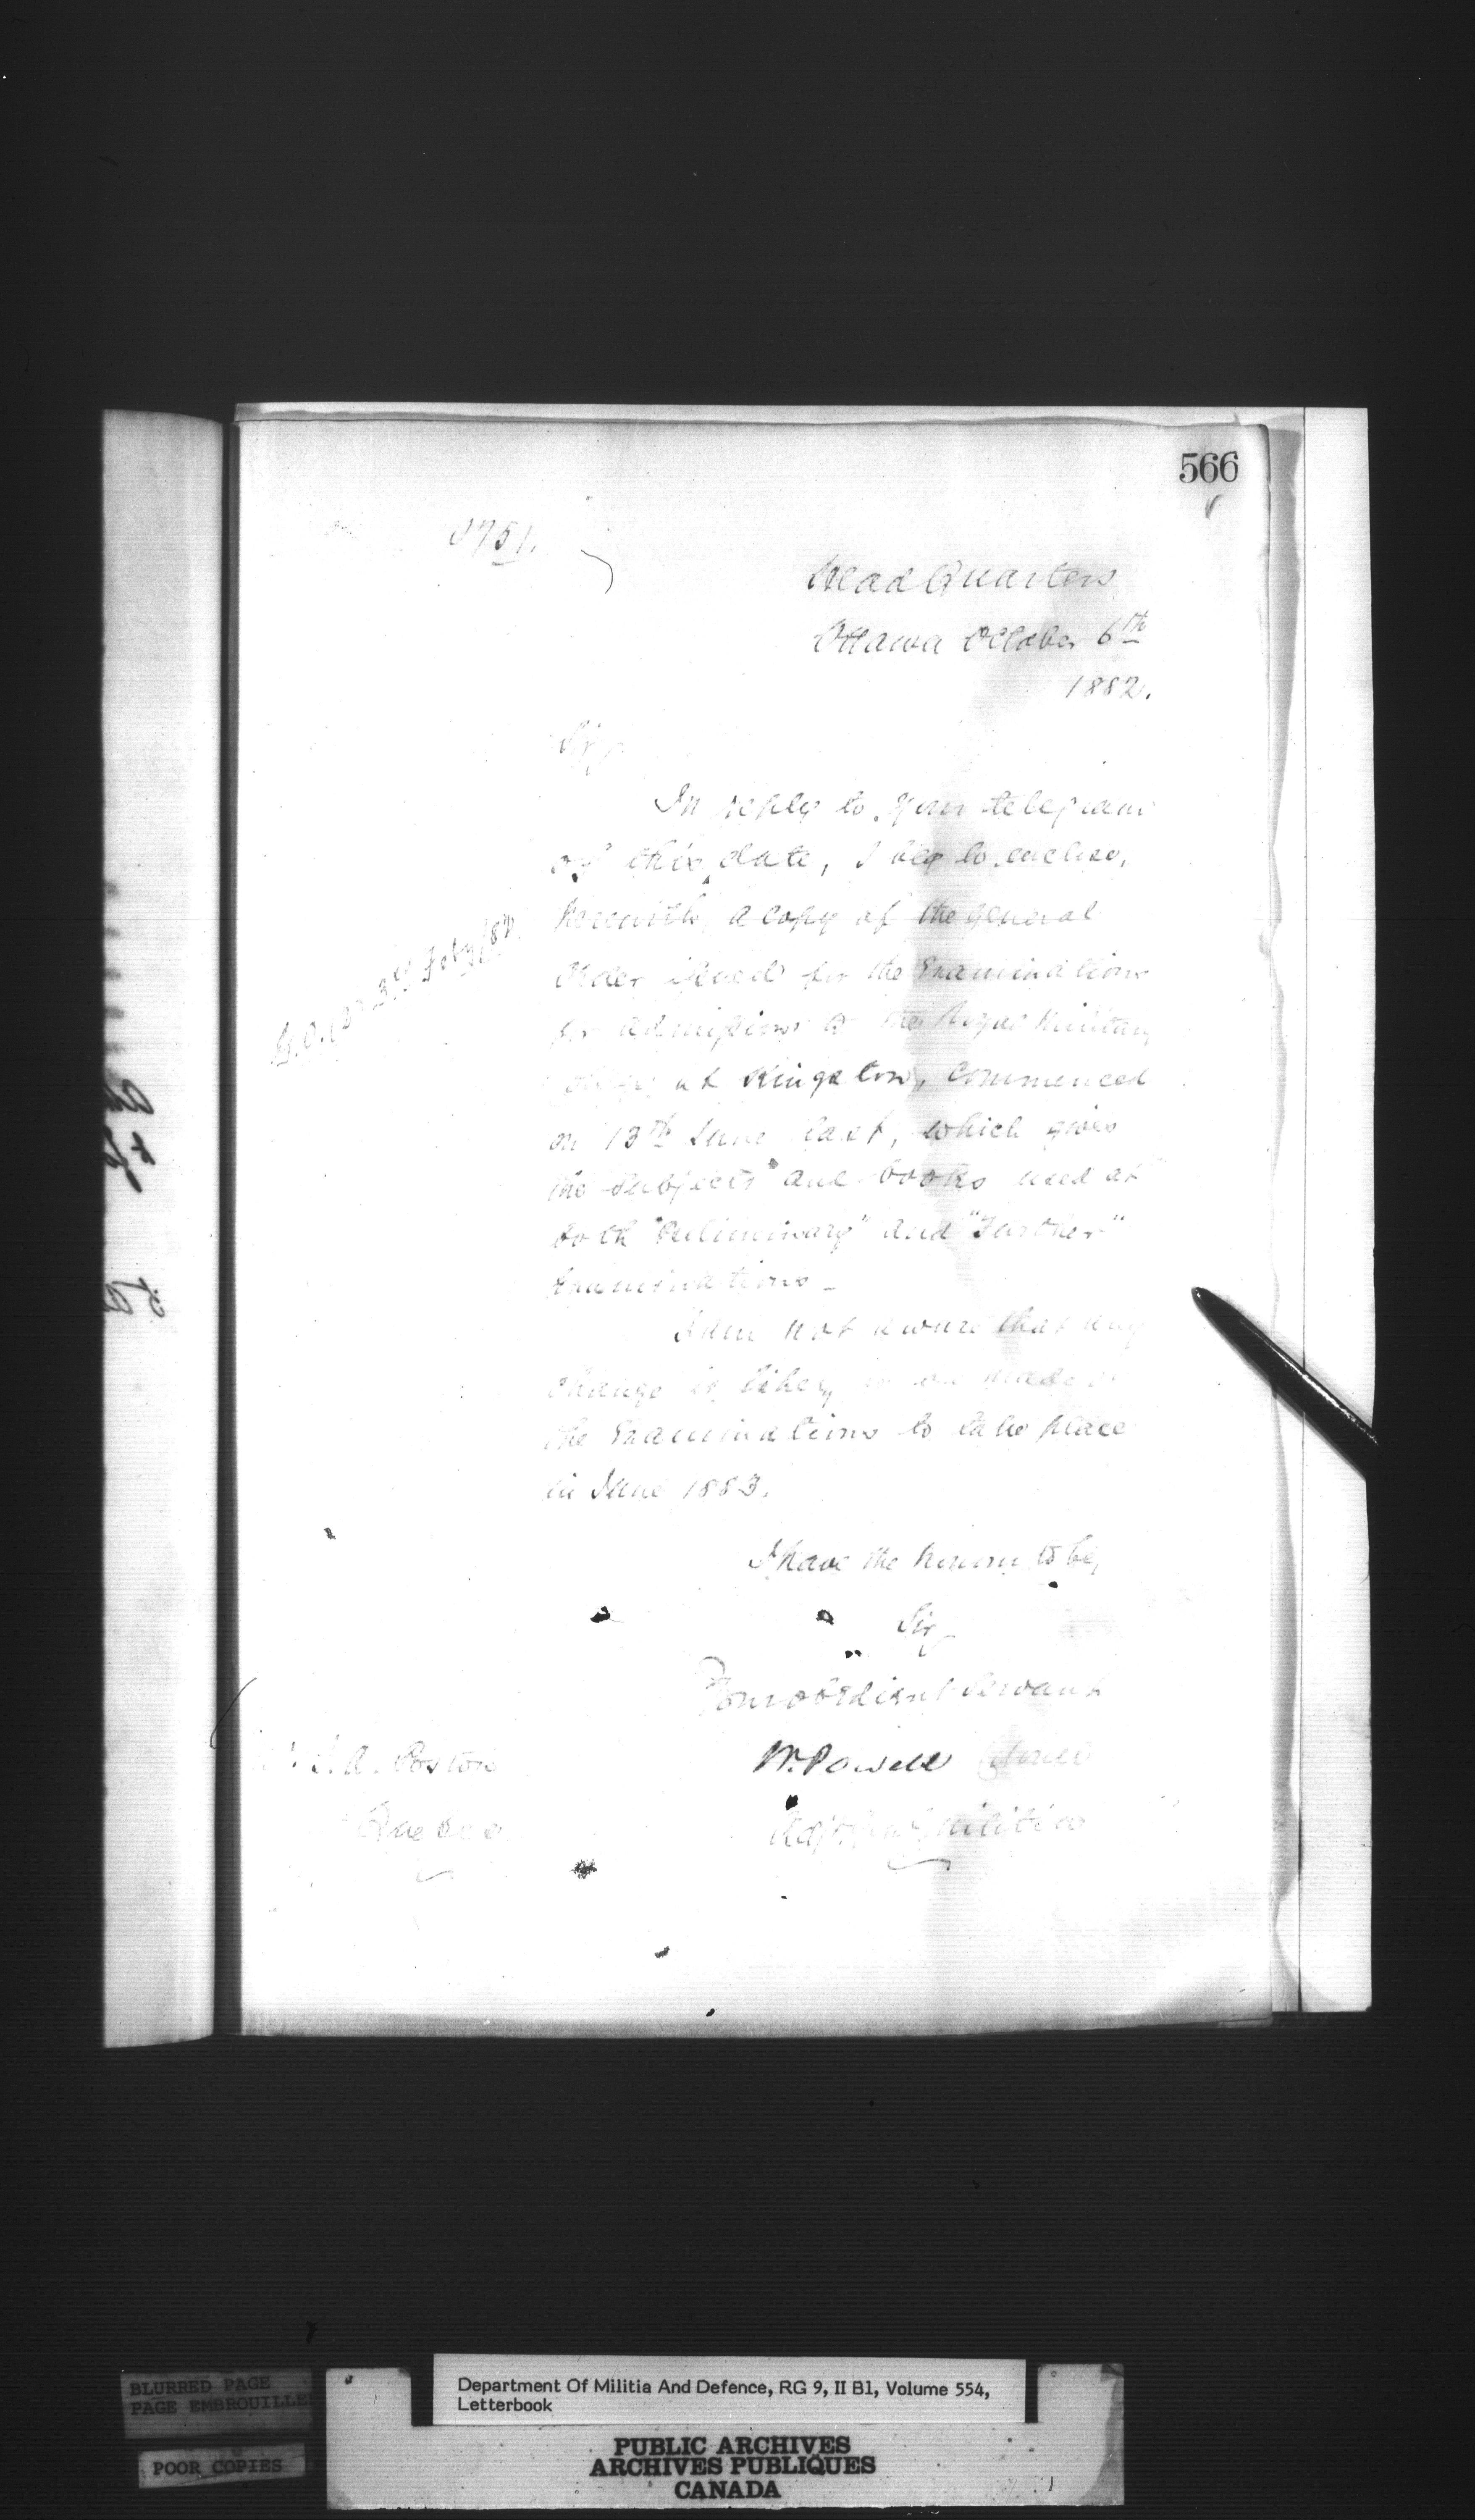 566
Head Quarters
Ottawa October 6th
1882.
Sir,
In reply to your telegram
of this date, I beg to enclose,
herewith, a copy of the General
Order issued for the Examinations
for admission to the Royal Military
College at Kingston, commenced
on 13th June last, which gives
the subjects and books used at
both "Preliminary" and "Further"
Examinations -
I am not aware that any
change is likely to be made in
the Examinations to take place
in June 1883.
I have the honour to be,
Sir,
Your obedient Servant
W. Powell Colonel
Adjt Genl Militia
J.A. Poston
Quebec
BLURRED PAGE
PAGE EMBROUILLEE
POOR COPIES
Department Of Militia And Defence, RG 9, II B1, Volume 554,
Letterbook
PUBLIC ARCHIVES
ARCHIVES PUBLIQUES
CANADA